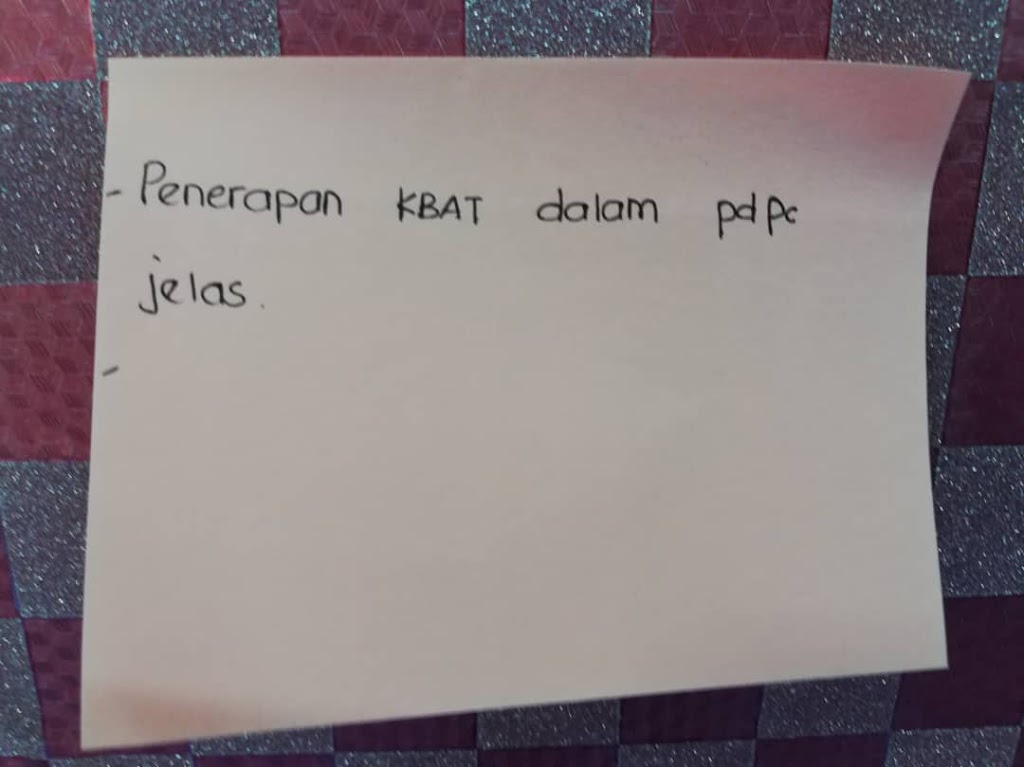 - Penerapan KBAT dalam pdpc
jelas.
-